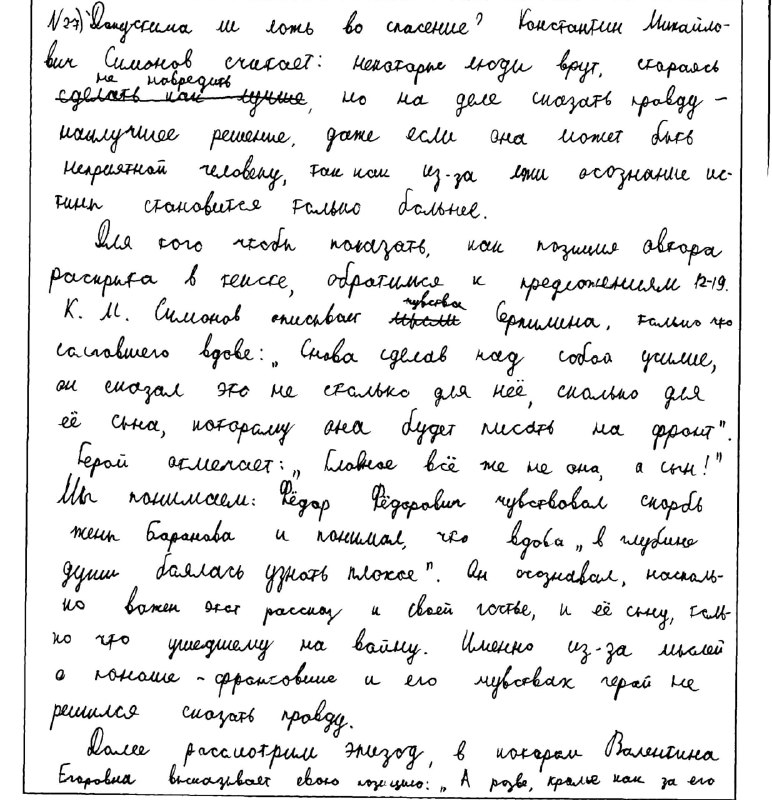 N27) Допустима ли ложь во спасение? Константин Михайло-
вич Симонов считает: некоторые люди врут, стараясь
не навредить
сделать как лучше, но на деле сказать правду –
наилучшее решение, даже если она может быть
неприятной человеку, так как из-за лжи осознание ис-
тины становится только больнее.
Для того чтобы показать, как позиция автора
раскрыта в тексте, обратимся к предложениям 12-19.
чувства
К. М. Симонов описывает мысли Серпилина, только что
солгавшего вдове: „Снова сделав над собой усилие,
он сказал это не столько для неё, сколько для
её сына, которому она будет писать на фронт".
Герой отмечает: „Главное всё же не она, а сын!"
Мы понимаем: Фёдор Фёдорович чувствовал скорбь
жены Баранова и понимал, что вдова „в глубине
души боялась узнать плохое". Он осознавал, насколь-
ко важен этот рассказ и своей гостье, и её сыну, толь-
ко что ушедшему на войну. Именно из-за мыслей
о юноше-фронтовике и его чувствах герой не
решился сказать правду.
Далее рассмотрим эпизод, в котором Валентина
Егоровна высказывает свою позицию: „А разве, кроме как за его